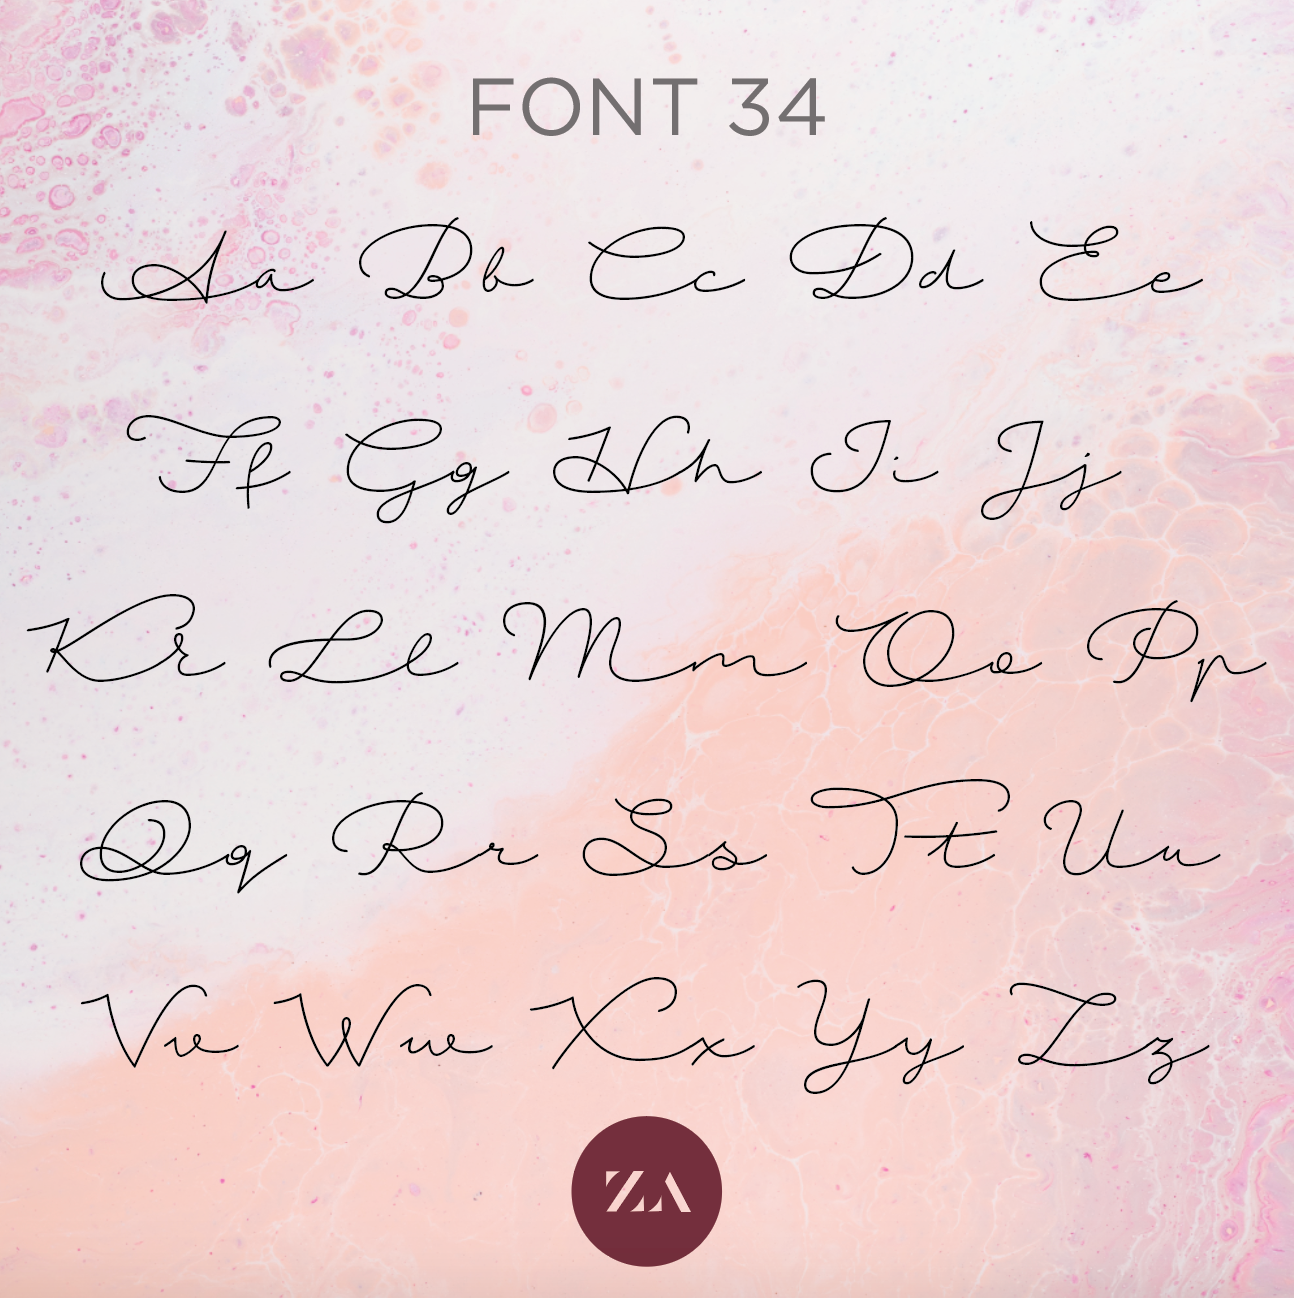 FONT 34
Aa Bb Cc Dd Ee
Ff Gg Hh Ii Jj
Kk Ll Mm Oo Pp
Qq Rr Ss Tt Uu
Vv Ww Xx Yy Zz
ZA